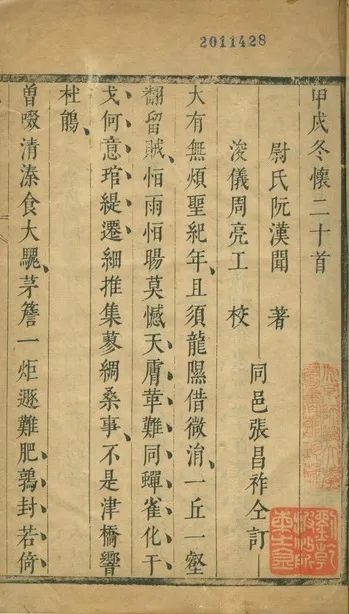 2011428
甲戌冬懷二十首
尉氏阮漢聞 著
浚儀周亮工 校
同邑張昌祚仝訂
大有無煩聖紀年、且須龍隰借微涓、一丘一壑
翻留賊、怕雨怕暘莫憾天、膚革難同蟬雀化、干
戈何意琯緹遷、細推集蓼綢桑事、不是津橋響
杜鵑、
曽啜清湌食大騩、茅簷一炬遯難肥、鶉封若倚